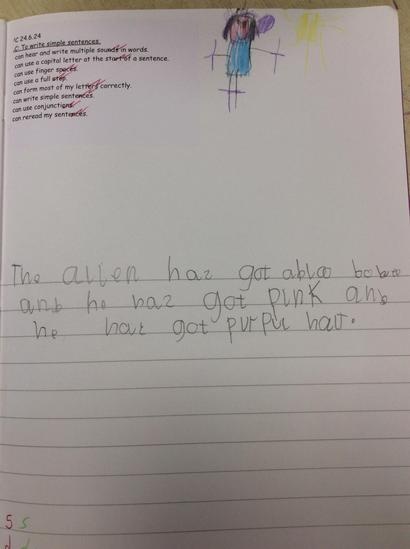 IC 24.6.24
C: To write simple sentences.
can hear and write multiple sounds in words.
can use a capital letter at the start of a sentence.
can use finger spaces.
can use a full stop.
can form most of my letters correctly.
can write simple sentences.
can use conjunctions.
can reread my sentences.
The alien haz got
anb he haz got pink anb
he haz got purpu hair.
5 5